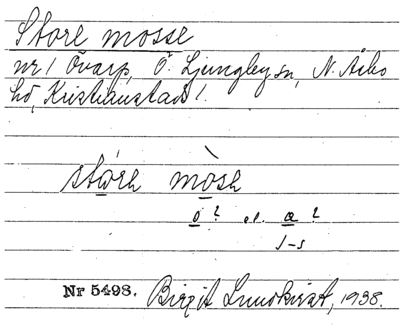 Store mosse
nr 1 Övarp, Ö. Ljungby sn, N. Åsbo
hd, Kristianstads l.
stórə mòsə
ö? el. a?
s-s
Nr 5498. Birgit Lundkvist, 1938.